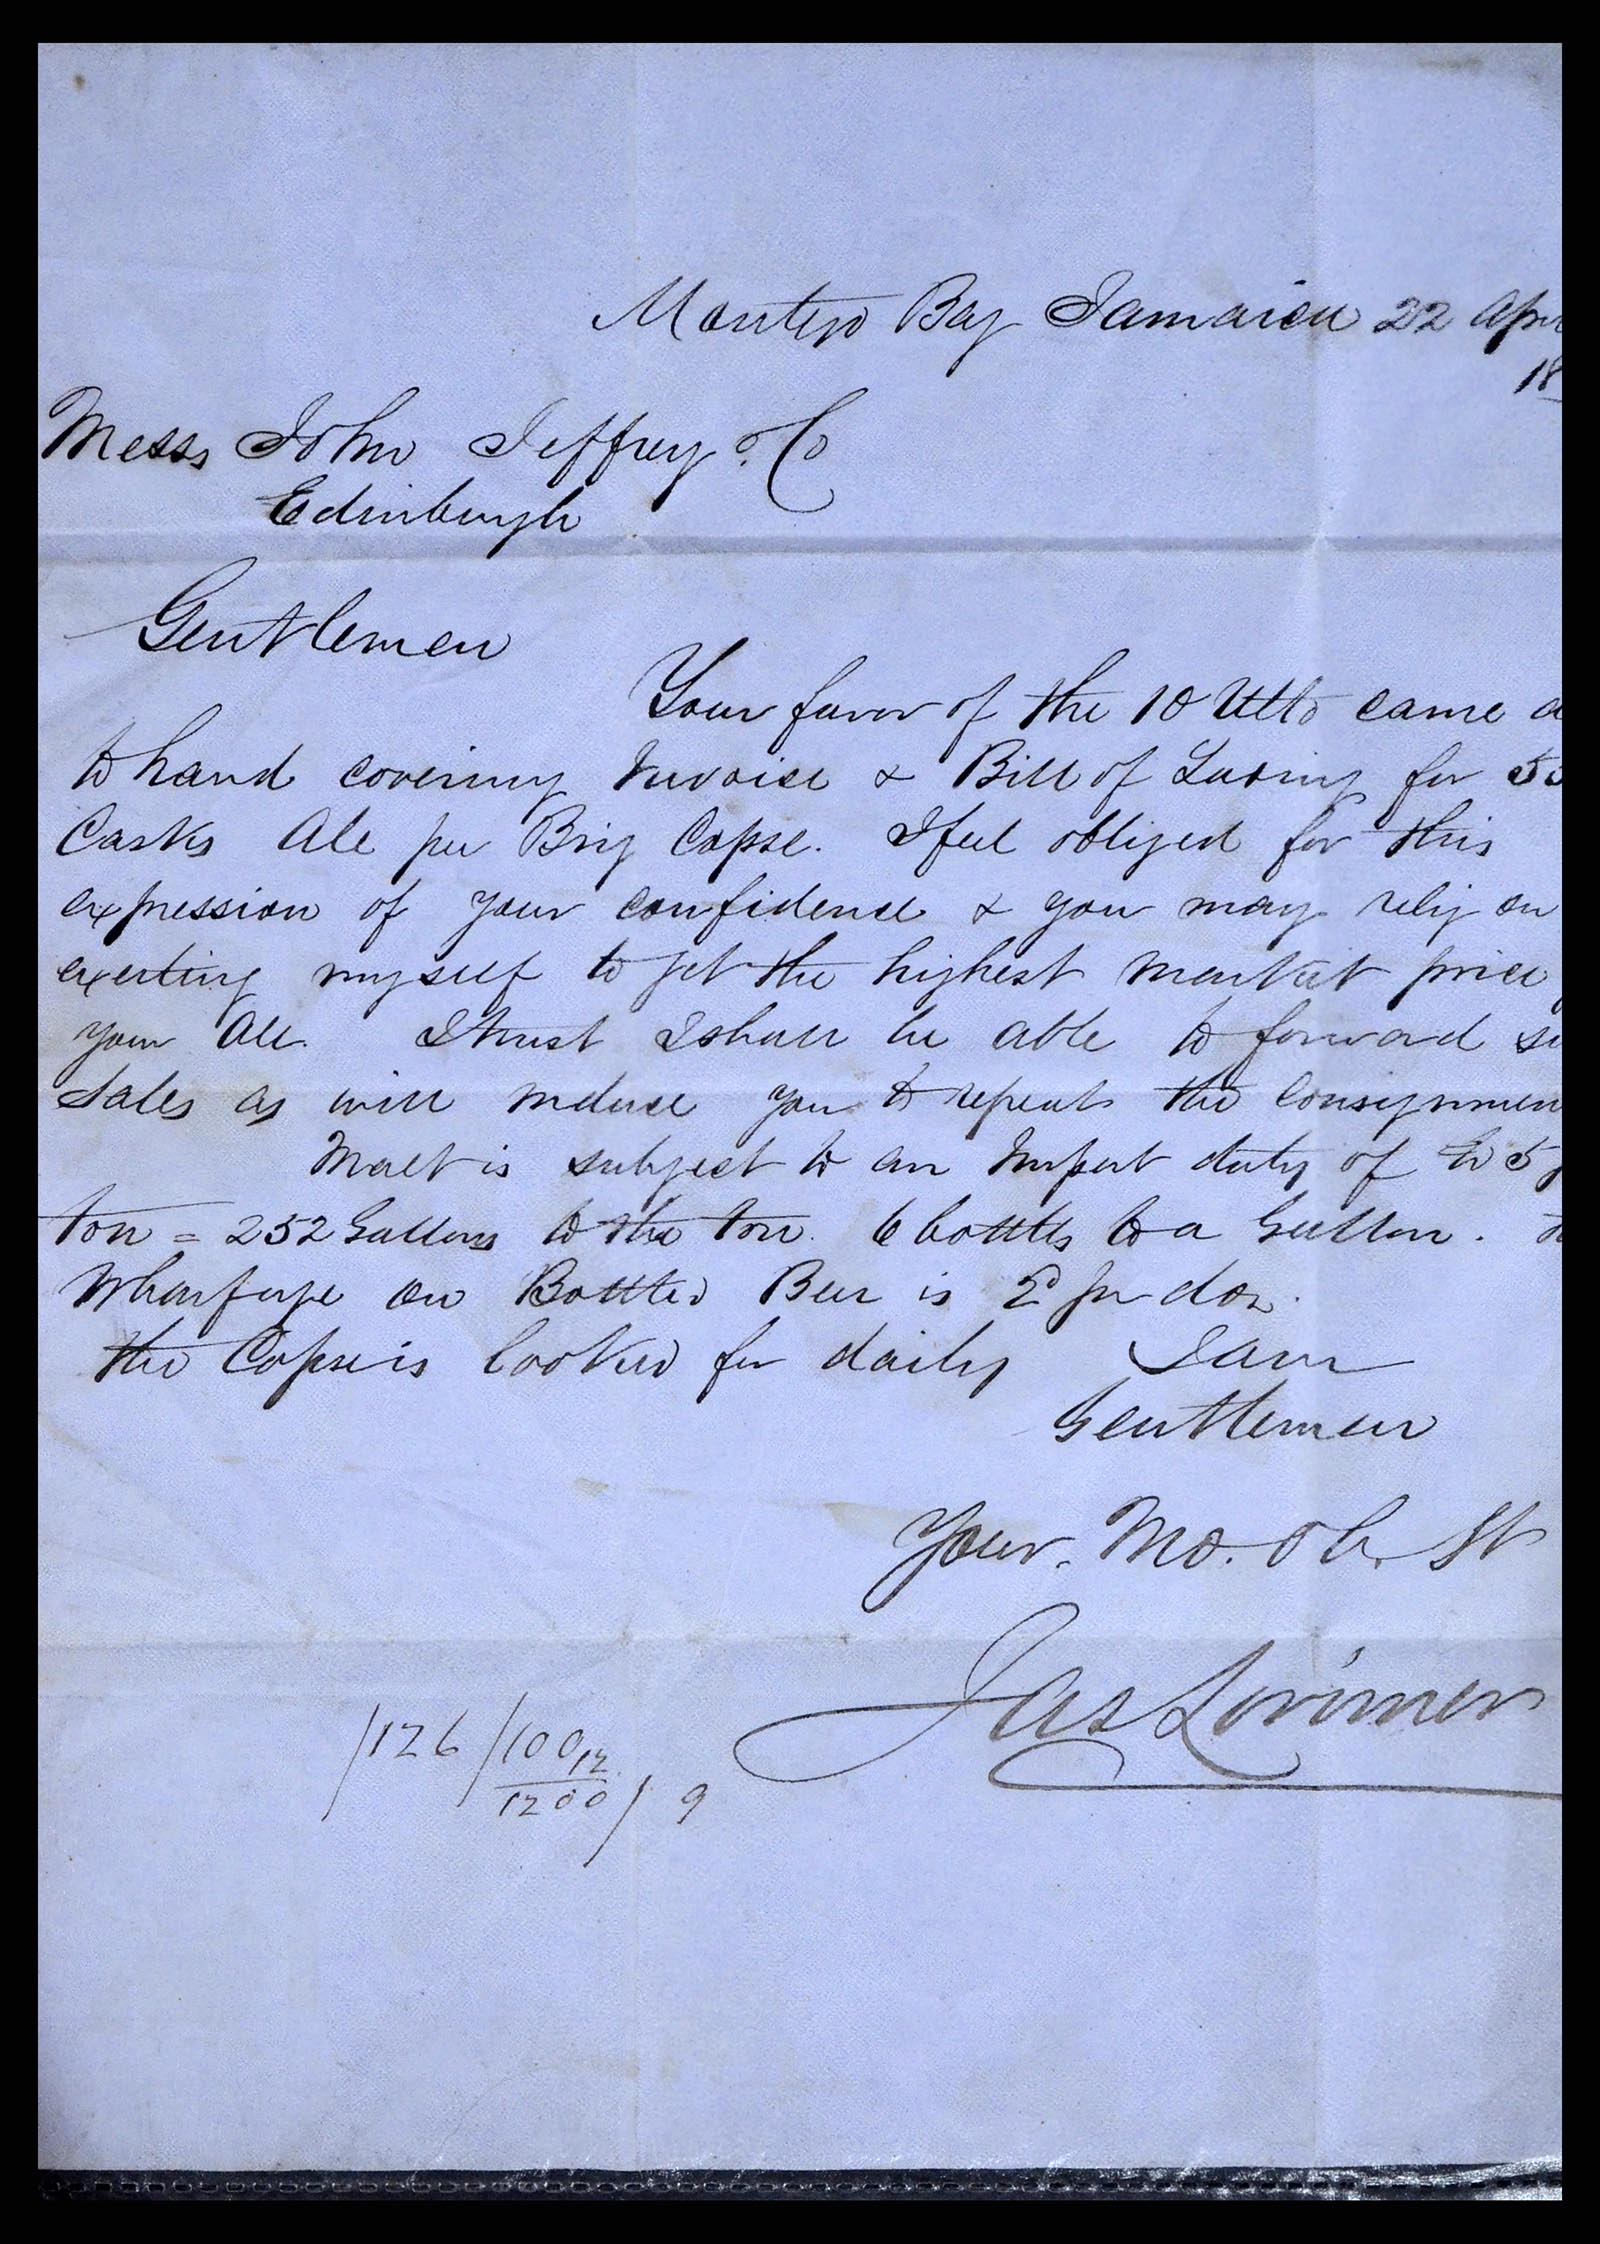 Montego Bay Jamaica 22 Apr
18
Mess John Jeffrey & Co
Edinburgh
Gentlemen
Your favor of the 10 Ulto came
to hand covering Invoice & Bill of Lading for
Casks Ale per Brig Copse. I feel obliged for this
expression of your confidence & you may rely on
exerting myself to get the highest market price
your Ale. I trust I shall be able to forward
Sales as will induce you to repeat the consignmen
Malt is subject to an Import duty of 5
ton = 252 Gallons to the ton. 6 bottles to a Gallon.
Wharfage on Bottled Beer is 2d per doz.
the Copse is looked for daily I am
Gentlemen
Your. Mo. Ob. St
Jas Lorimer
/126/100 12
1200/9